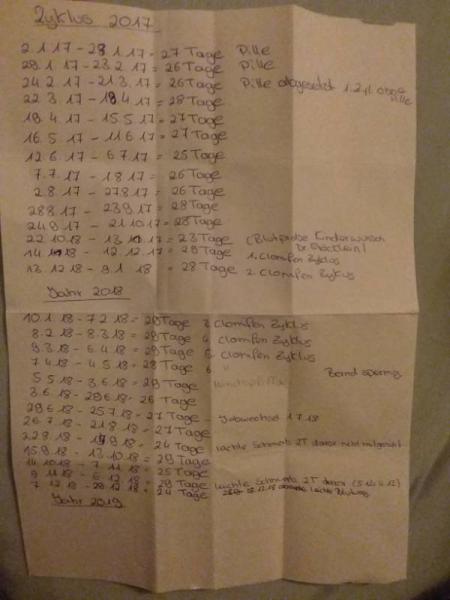 Zyklus 2017
2.1.17 - 28.1.17 = 27 Tage Pille
29.1.17 - 23.2.17 = 26 Tage Pille
24.2.17 - 21.3.17 = 26 Tage Pille abgesetzt 1. Zyl. ohne Pille
22.3.17 - 18.4.17 = 28 Tage
19.4.17 - 15.5.17 = 27 Tage
16.5.17 - 11.6.17 = 27 Tage
12.6.17 - 6.7.17 = 25 Tage
7.7.17 - 1.8.17 = 26 Tage
2.8.17 - 27.8.17 = 26 Tage
28.8.17 - 23.9.17 = 28 Tage
24.9.17 - 21.10.17 = 28 Tage
22.10.18 - 13. .17 = 23 Tage (Blutprobe Kinderwunsch
14. .18 - 12.12.17 = 29 Tage 1. Clomifen Zyklus
13.12.18 - 9.1.18 = 28 Tage 2. Clomifen Zyklus
Jahr 2018
10.1.18 - 7.2.18 = 29 Tage 3. Clomifen Zyklus
8.2.18 - 8.3.18 = 29 Tage 4. Clomifen Zyklus
9.3.18 - 6.4.18 = 29 Tage 5. Clomifen Zyklus
7.4.18 - 4.5.18 = 28 Tage 6. "
5.5.18 - 3.6.18 = 29 Tage
3.6.18 - 28.6.18 = 26 Tage
29.6.18 - 25.7.18 = 27 Tage - Jobwechsel 1.7.18
26.7.18 - 21.8.18 = 27 Tage
22.8.18 - 9.18 = 24 Tage leichte Schmerz 2T davor nicht
15.9.18 - 13.10.18 = 29 Tage
14.10.18 - 7.11.18 = 25 Tage
8.11.18 - 6.12.18 = 29 Tage leichte Schmerz 2T davor
7.12.18 - 29.12.18 = 24 Tage leichte Blutung
Jahr 2019